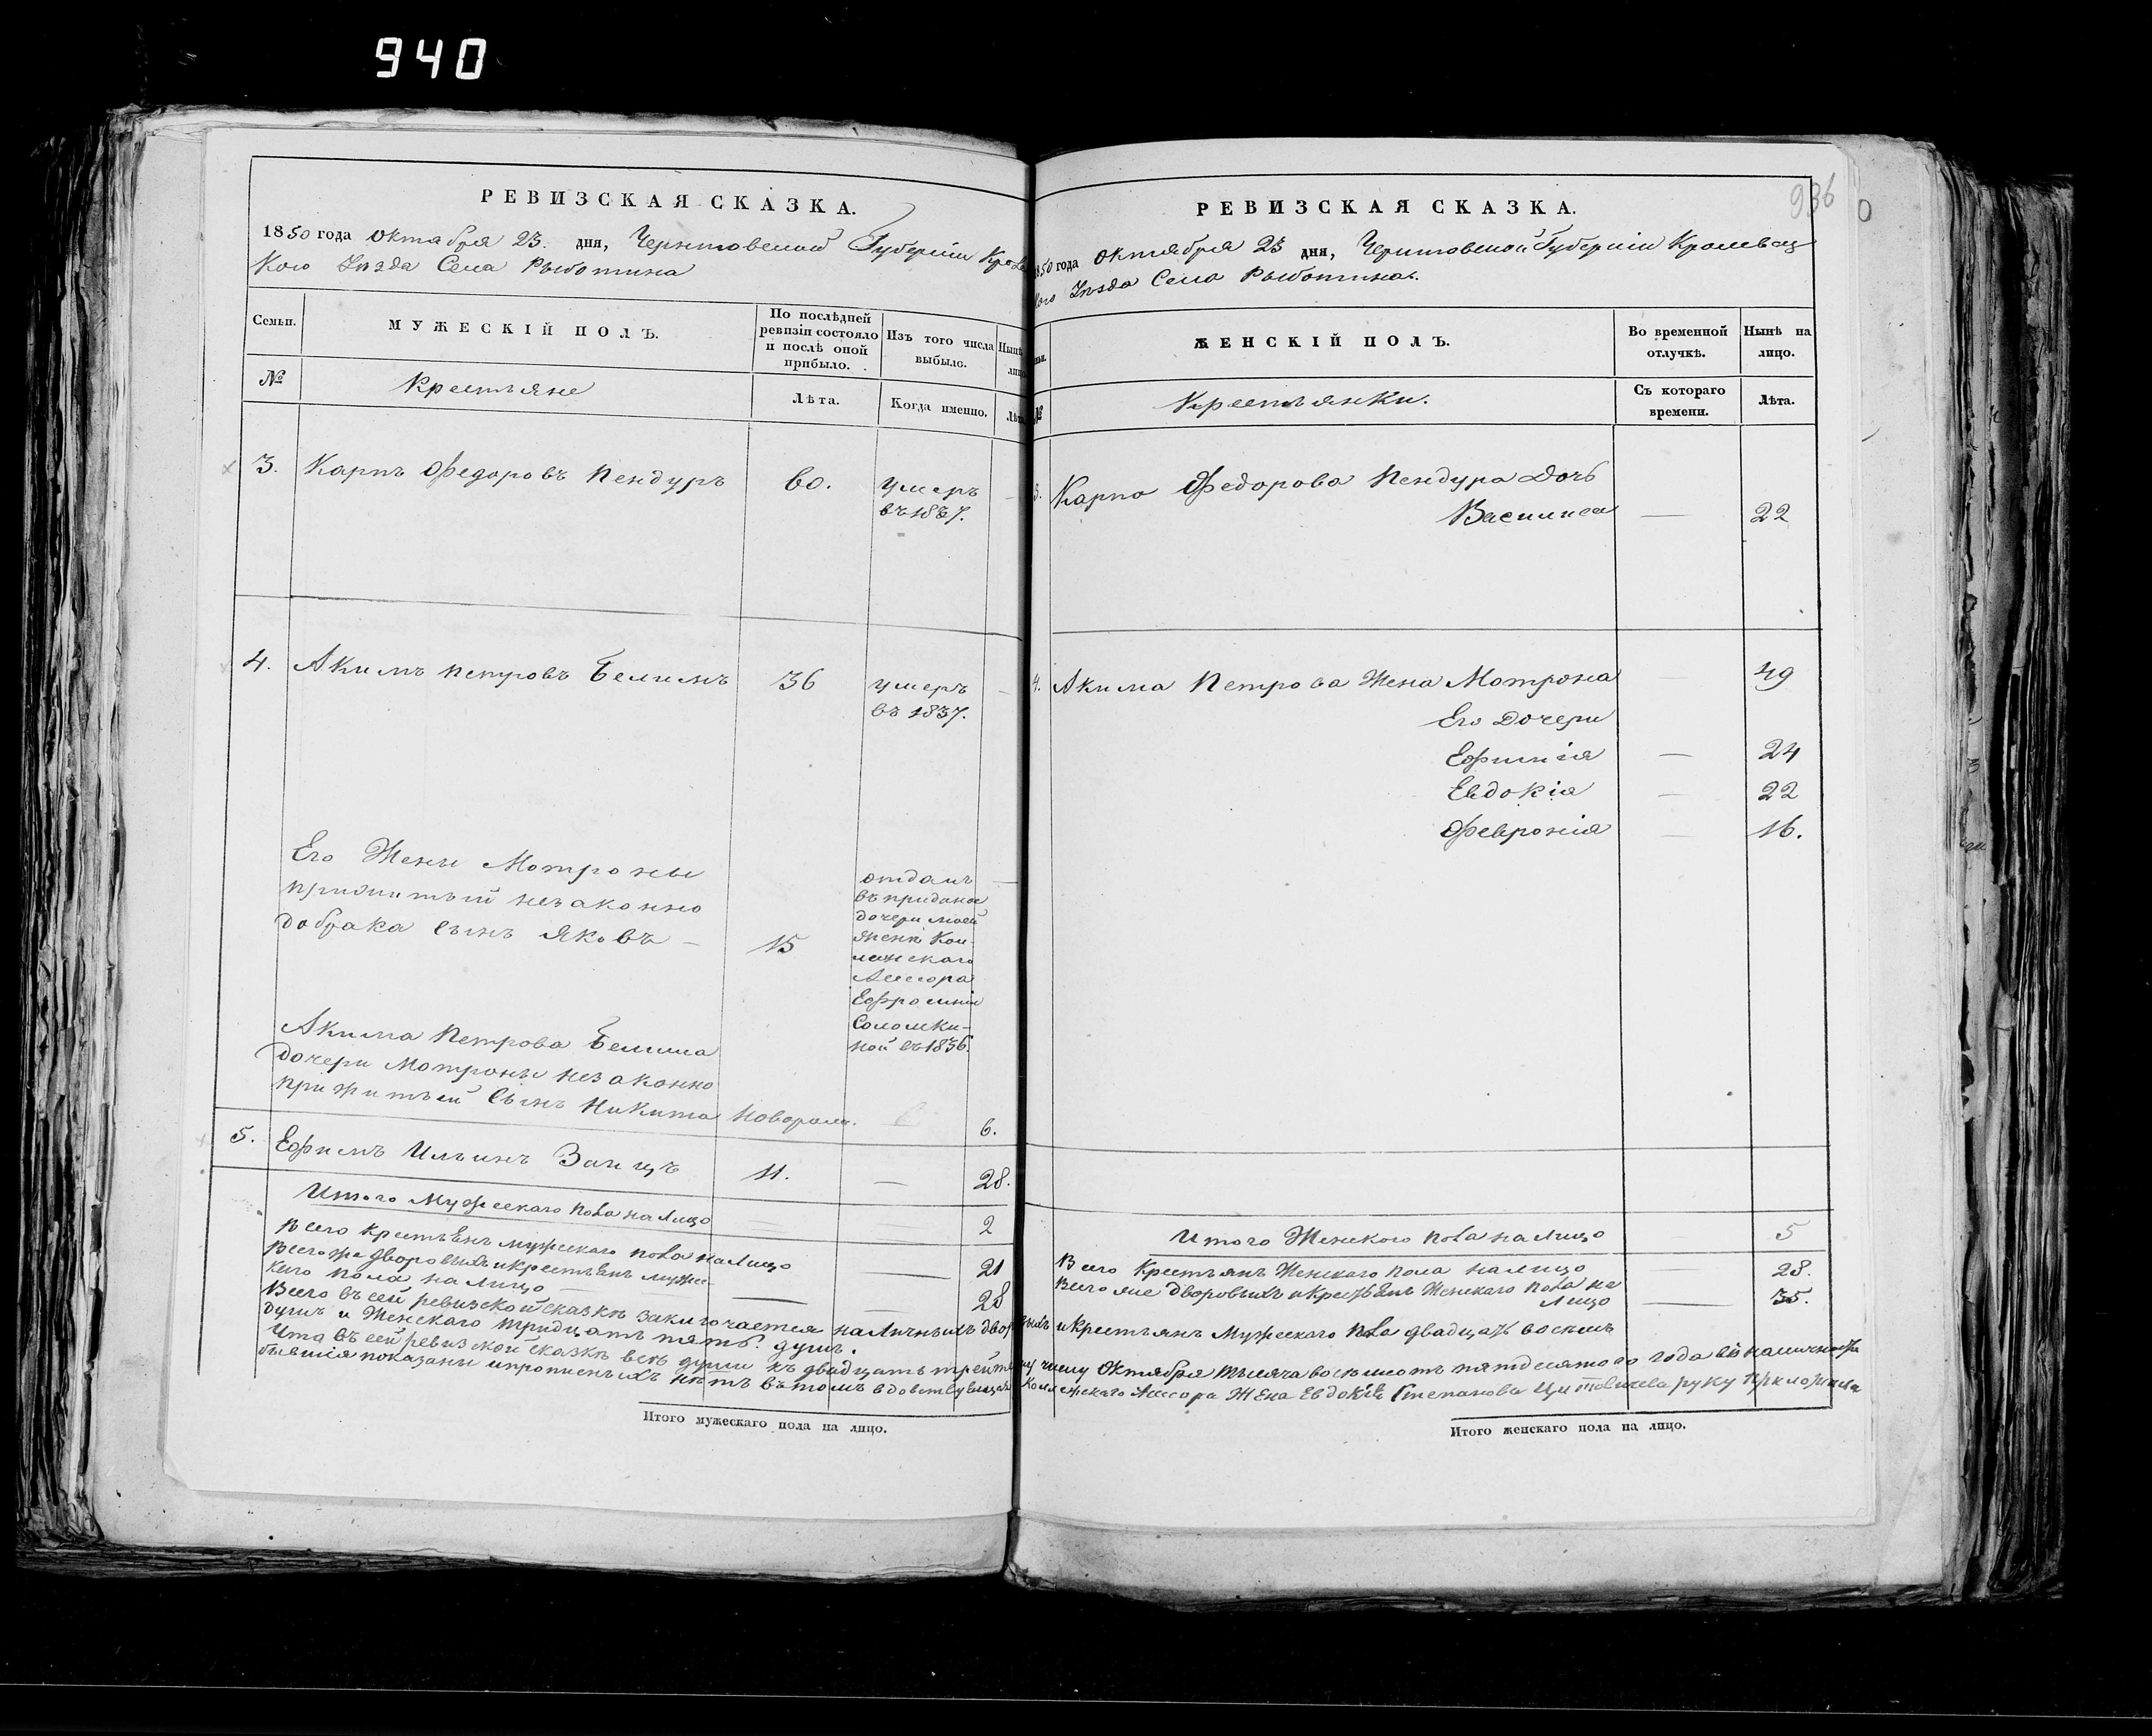 940
РЕВИЗСКАЯ СКАЗКА.
1850 года Октября 23. дня, Черниговской Губерніи Кролевец
кого Уезда Села Рыботина
Семьи.
МУЖЕСКІЙ ПОЛЪ.
По послѣдней ревизіи состояло и послѣ оной прибыло.
Изъ того числа выбыло.
Нынѣ лицо
№
Крестьяне
Лѣта.
Когда именно.
Лѣта
3. Карпъ Федоровъ Пендуръ 60. умеръ —
въ 1837.
4. Акимъ Петровъ Белимъ 36 умеръ —
въ 1837.
Его Жены Мотроны
прижитый незаконно
добрака сынъ Яковъ — 15
отданъ —
въ приданое
дочери моей
жене Кол-
лежскаго
Ассесора
Ефросиніи
Соломки-
ной въ 1836.
Акима Петрова Белима
дочери Мотроны незаконно
прижитый сынъ Никита новорож. 6.
5. Ефимъ Ильинъ Заицъ 11. — 28.
Итого Мужескаго пола на лицо — — 2
Всего крестьянъ мужескаго пола на лицо — 21
Всего же дворовыхъ и крестьянъ муже-
каго пола на лицо — — — 28
Всего въ сей ревизской сказкѣ заключается наличныхъ дворовыхъ и крестьянъ Мужескаго пола двадцать восемь
душъ и Женскаго тридцать пять душъ.
Что въ сей ревизской сказкѣ всѣ души къ двадцать третьему числу Октября тысяча восемьсотъ пятдесятого года въ наличности
бывшія показаны и прописныхъ нѣтъ въ томъ вдовствующая Коллежскаго Ассесора Жена Евдокія Степанова руку приложила
Итого мужескаго пола на лицо.
936
РЕВИЗСКАЯ СКАЗКА.
1850 года Октября 23 дня, Черниговской Губерніи Кролевец
кого Уезда Села Рыботина.
ЖЕНСКІЙ ПОЛЪ.
Во временной отлучкѣ.
Нынѣ на лицо.
№
Крестьянки.
Съ котораго времени.
Лѣта.
3. Карпа Федорова Пендура Дочь
Василиса — 22
4. Акима Петрова Жена Мотрона — 49
Его Дочери
Ефимія — 24
Евдокія — 22
Февронія — 16.
Итого Женского пола на лицо — 5
Всего Крестьянъ Женскаго пола на лицо — 28.
Всего же дворовыхъ и крестьянъ Женскаго пола на
лицо — 35.
Итого женскаго пола на лицо.